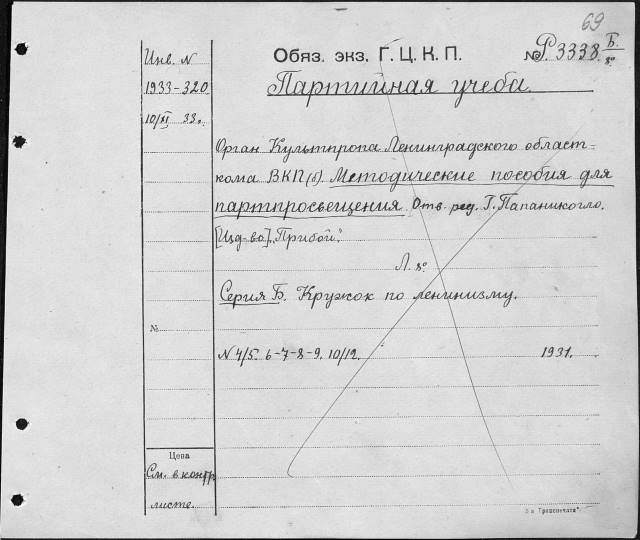 69
Инв. N
1933-320
10/XI 33г.
Обяз. экз. Г. Ц. К. П.
№ Р3338 Б/8°
Партийная учеба.
Орган Культпропа Ленинградского област=
кома ВКП(б). Методические пособия для
партпросвещения. Отв. ред. Г. Папаникогло.
[Изд-во] „Прибой".
Л. 8°.
Серия Б. Кружок по ленинизму.
№
N 4/5. 6-7-8-9. 10/12. 1931.
Цена
См. в контр.
листе.